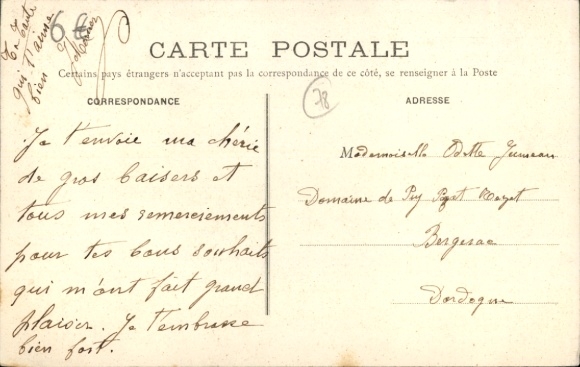 Ta Tante
qui t'aime
bien
6 €
CARTE POSTALE
Certains pays étrangers n'acceptant pas la correspondance de ce côté, se renseigner à la Poste
CORRESPONDANCE
Je t'envoie ma chérie
de gros baisers et
tous mes remerciements
pour tes bons souhaits
qui m'ont fait grand
plaisir. Je t'embrasse
bien fort.
78
ADRESSE
Mademoiselle Odette Jumeau
Domaine de Puy
Bergerac
Dordogne